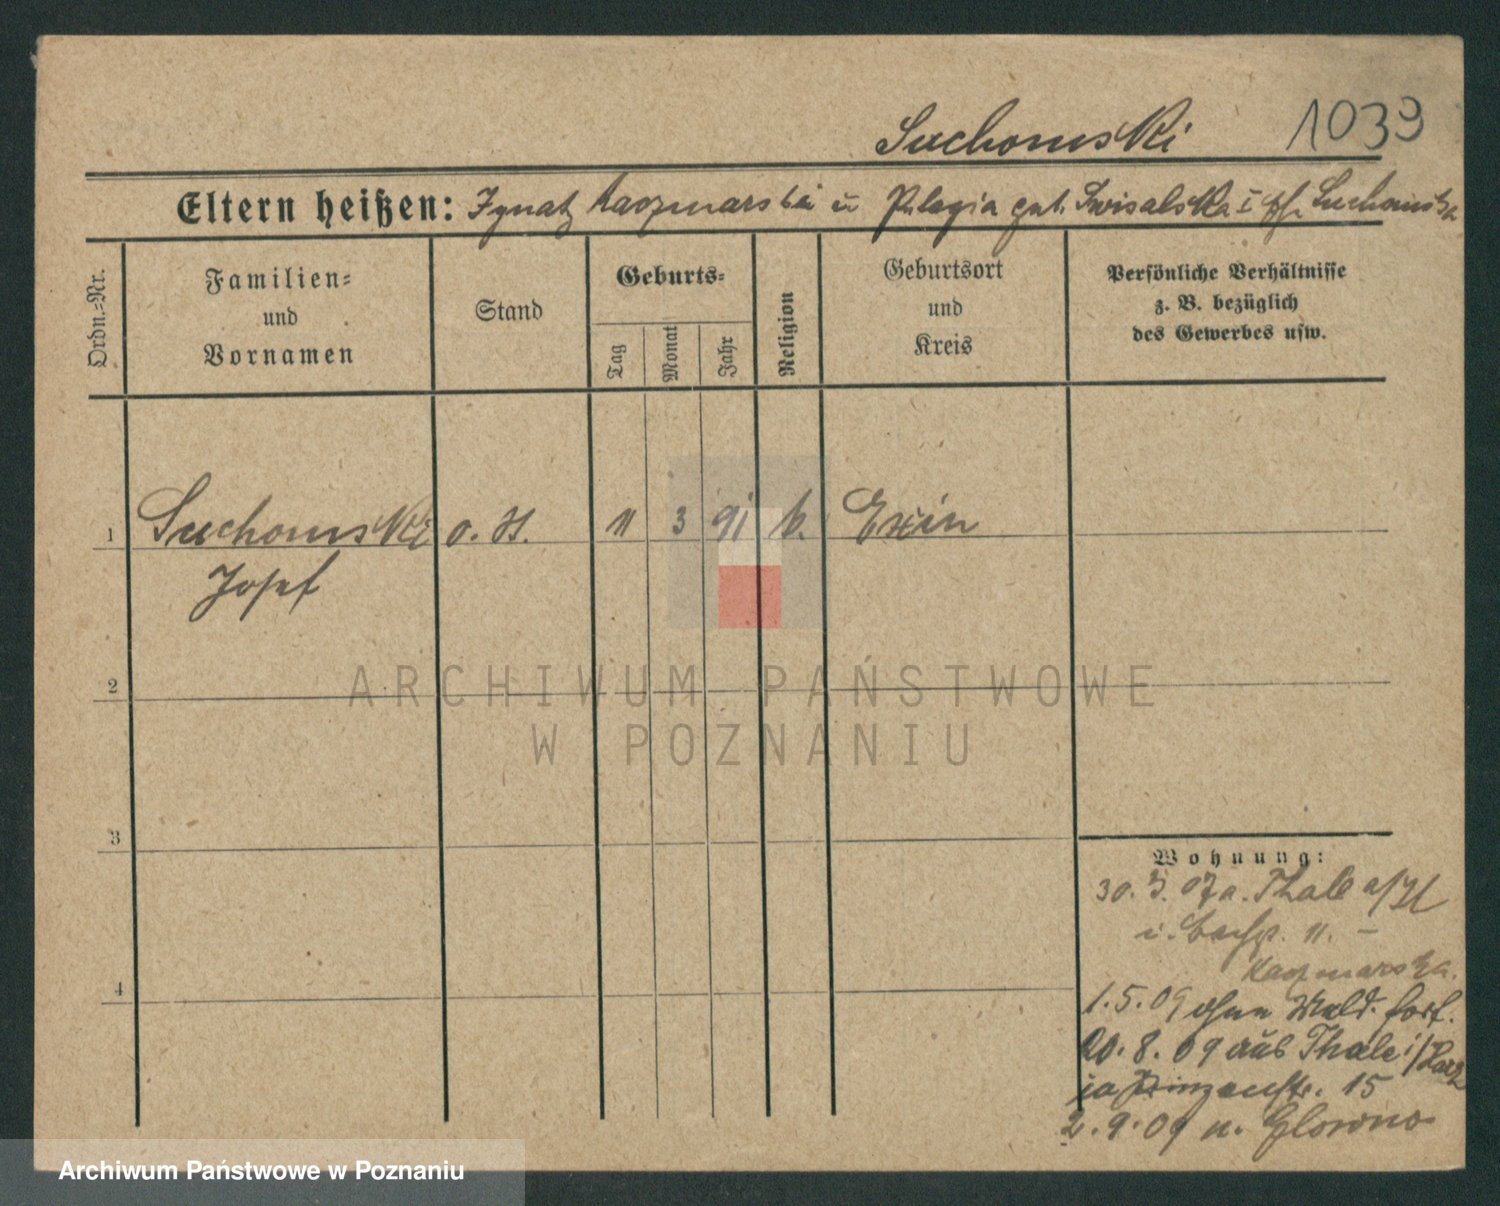 Suchomski 1039
Eltern heißen: Ignatz Kaczmarski u Pelagia geb. Swisalska I Suchomska
Ordn.-Nr.
Familien-
und
Vornamen
Stand
Geburts-
Tag
Monat
Jahr
Religion
Geburtsort
und
Kreis
Persönliche Verhältnisse
z. B. bezüglich
des Gewerbes usw.
1 Suchomski o. St. 11 3 91 k. Exin
Josef
2
3
4
Wohnung:
30. 3. 07 a. Thale a/H
11. –
Kaczmarska.
1.5.09 ohne Meld. fort.
20. 8. 09 aus Thale i/Harz
Prinzenstr. 15
2.9.09 n. Glowno
ARCHIWUM PAŃSTWOWE
W POZNANIU
Archiwum Państwowe w Poznaniu